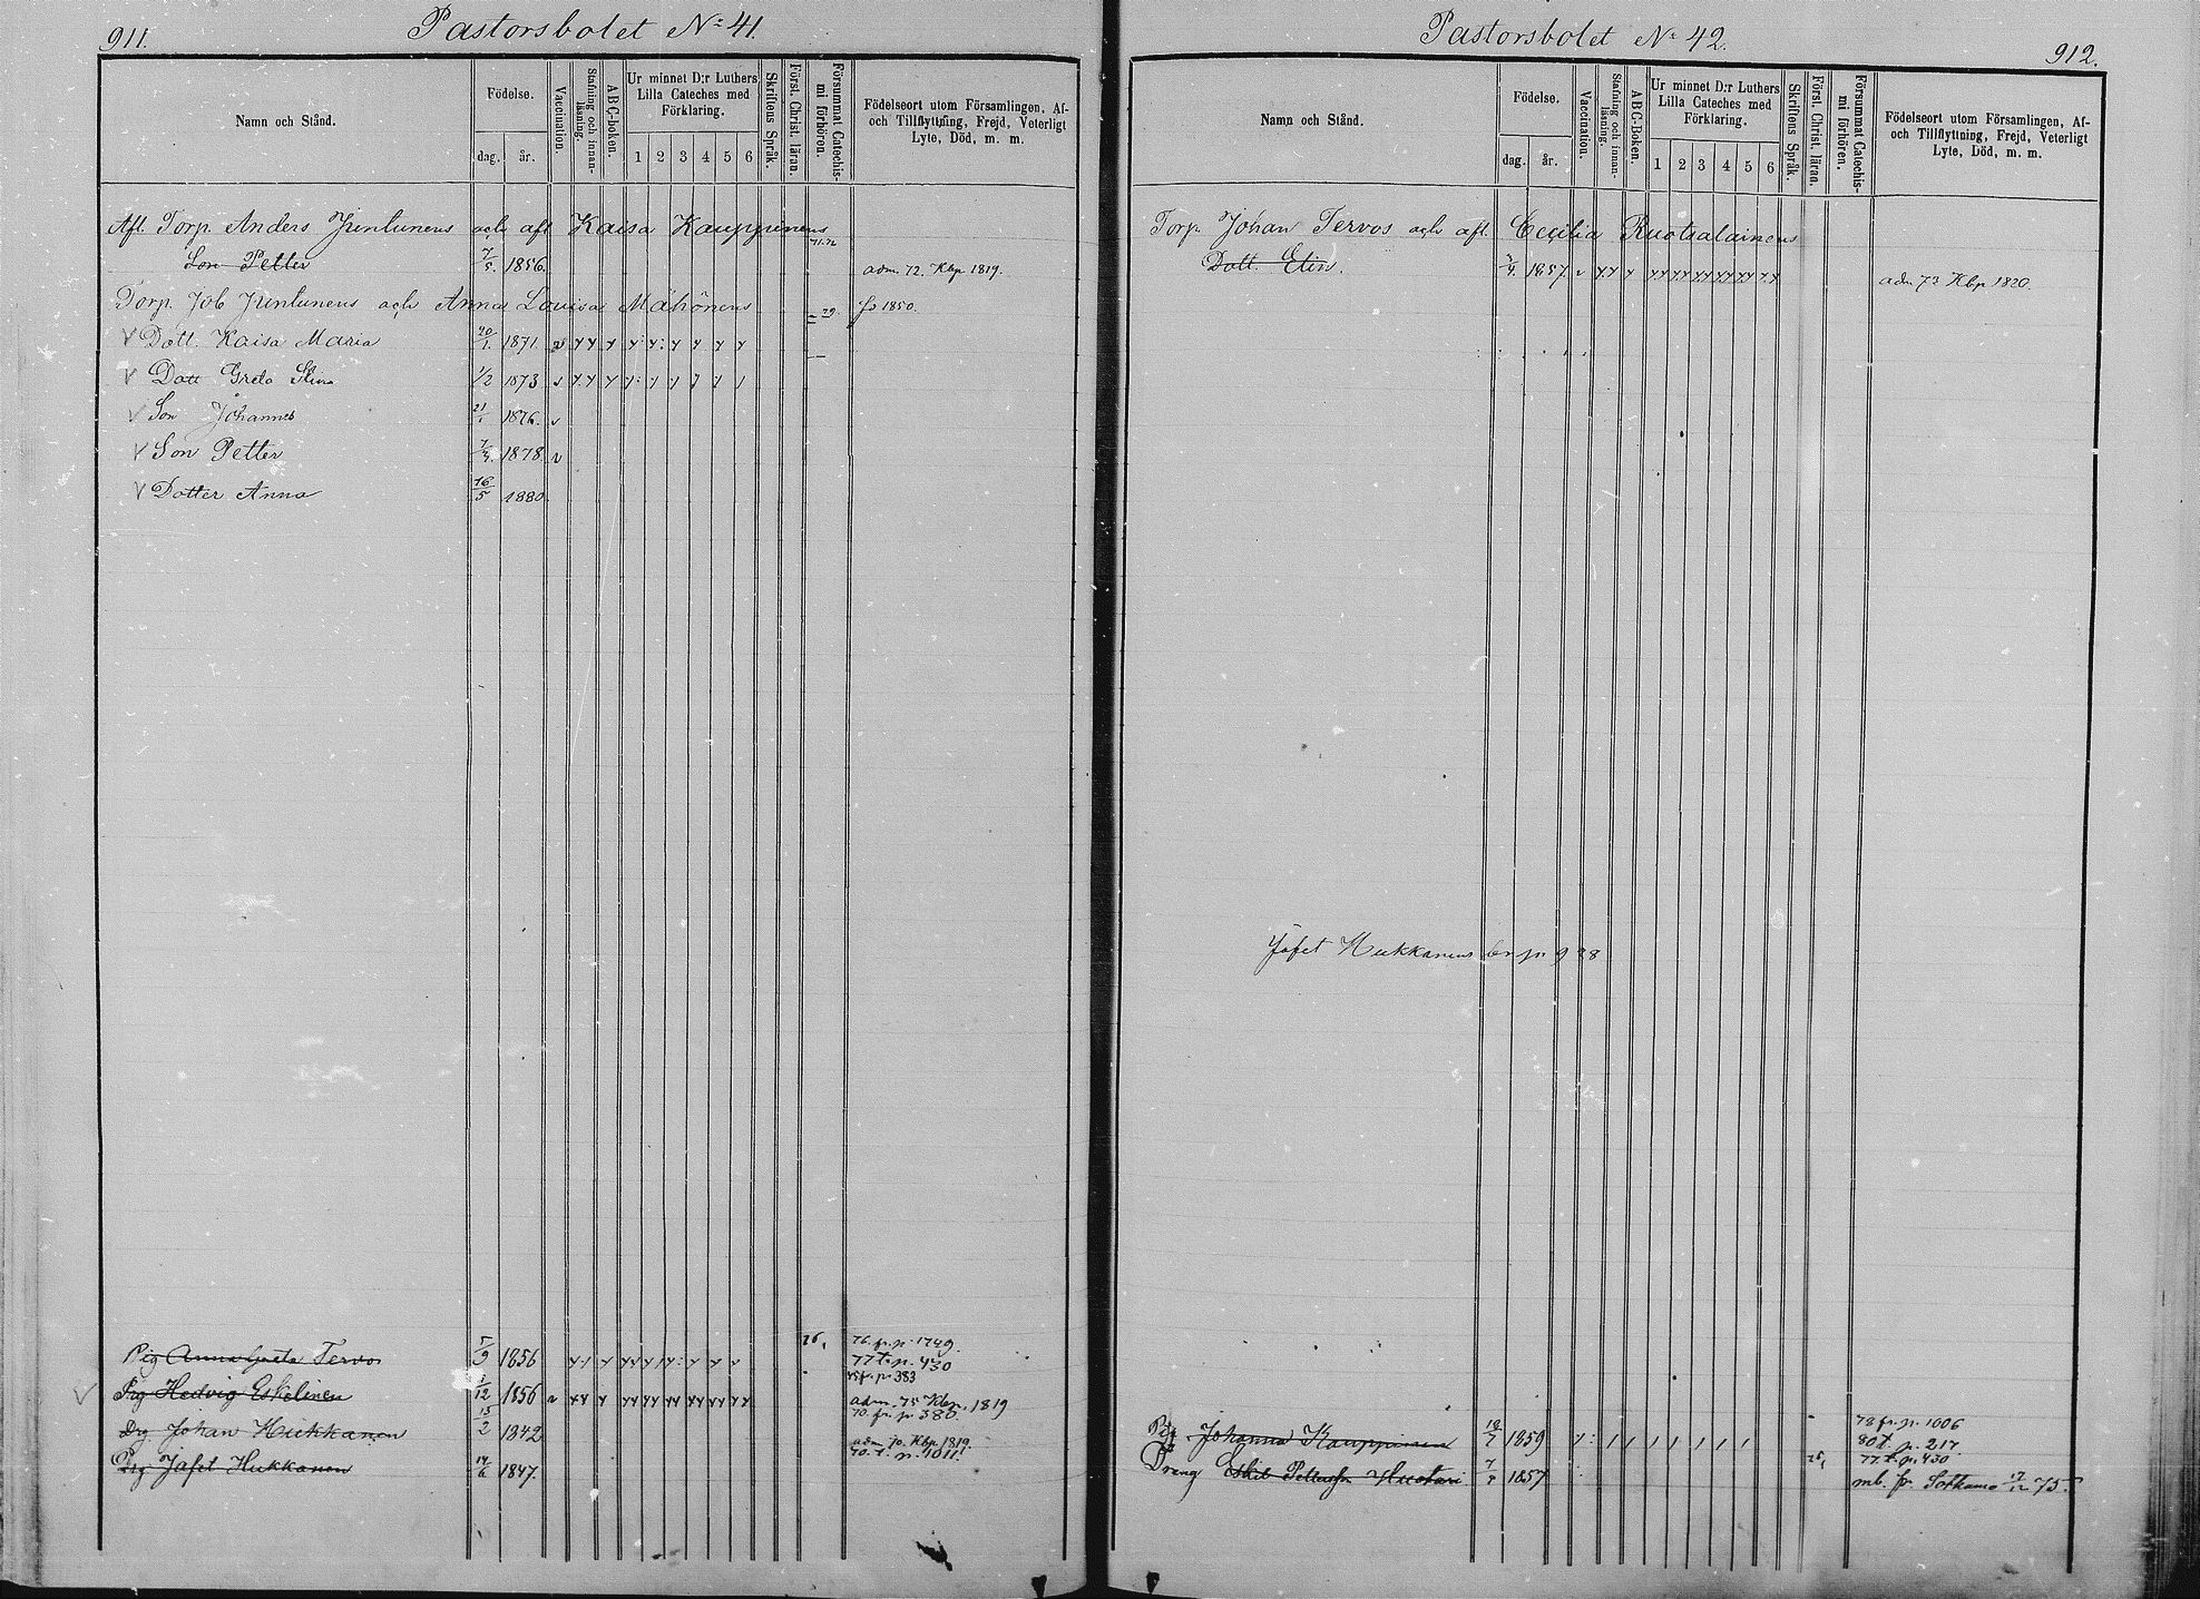 911.
Pastorsbolet No 41.
Namn och Stånd.
Födelse.
dag.
år.
Vaccination.
Stafning och innan-
läsning.
ABC-boken.
Ur minnet D:r Luthers
Lilla Cateches med
Förklaring.
1 2 3 4 5 6
Skriftens Språk.
Först. Christ. läran.
Försummat Catechis-
mi förhören.
Födelseort utom Församlingen, Af-
och Tillflyttning, Frejd, Veterligt
Lyte, Död, m. m.
Afl. Torp. Anders Juntunens och afl Kaisa Kauppinens
71.72
Son Petter 7/5. 1856. adm. 72. Kbp 1819.
Torp. Job Juntunens och Anna Lovisa Mähönens 79. fs 1850.
v Dott. Kaisa Maria 20/1. 1871.
v Dott Greta Stina 1/2 1873
v Son Johannes 21/1 1876.
v Son Petter 1878
v Dotter Anna 16/5 1880.
Pig Anna Greta Tervo 5/9 1856 76. fr. p. 1749.
77 t. p. 430
fr. p. 383
Pig Hedvig Eskelinen /12 1856 adm. 75 Kbp. 1819
70. fr. p. 380.
Drg Johan Hukkanen 15/2 1842
adm 70. Kbp 1819.
70. t. p. 1011.
Drg Jafet Hukkanen 14/6 1847.
Pastorsbolet No 42.
912.
Namn och Stånd.
Födelse.
dag.
år.
Vaccination.
Stafning och innan-
läsning.
ABC-Boken.
Ur minnet D:r Luthers
Lilla Cateches med
Förklaring.
1 2 3 4 5 6
Skriftens Språk.
Först. Christ. läran.
Försummat Catechis-
mi förhören.
Födelseort utom Församlingen, Af-
och Tillflyttning, Frejd, Veterligt
Lyte, Död, m. m.
Torp. Johan Tervos och afl. Cecilia Ruotsalainens
Dott. Elin. 1857. adm 73 Kbp 1820.
Jafet Hukkanens
Pig Johanna Kauppinen 1859 78 fr. p. 1006
80 t. p. 217.
77 t. p. 430
Dräng Petterss. Huotari 1857 mb. fr. Sotkamo 17/12 75.